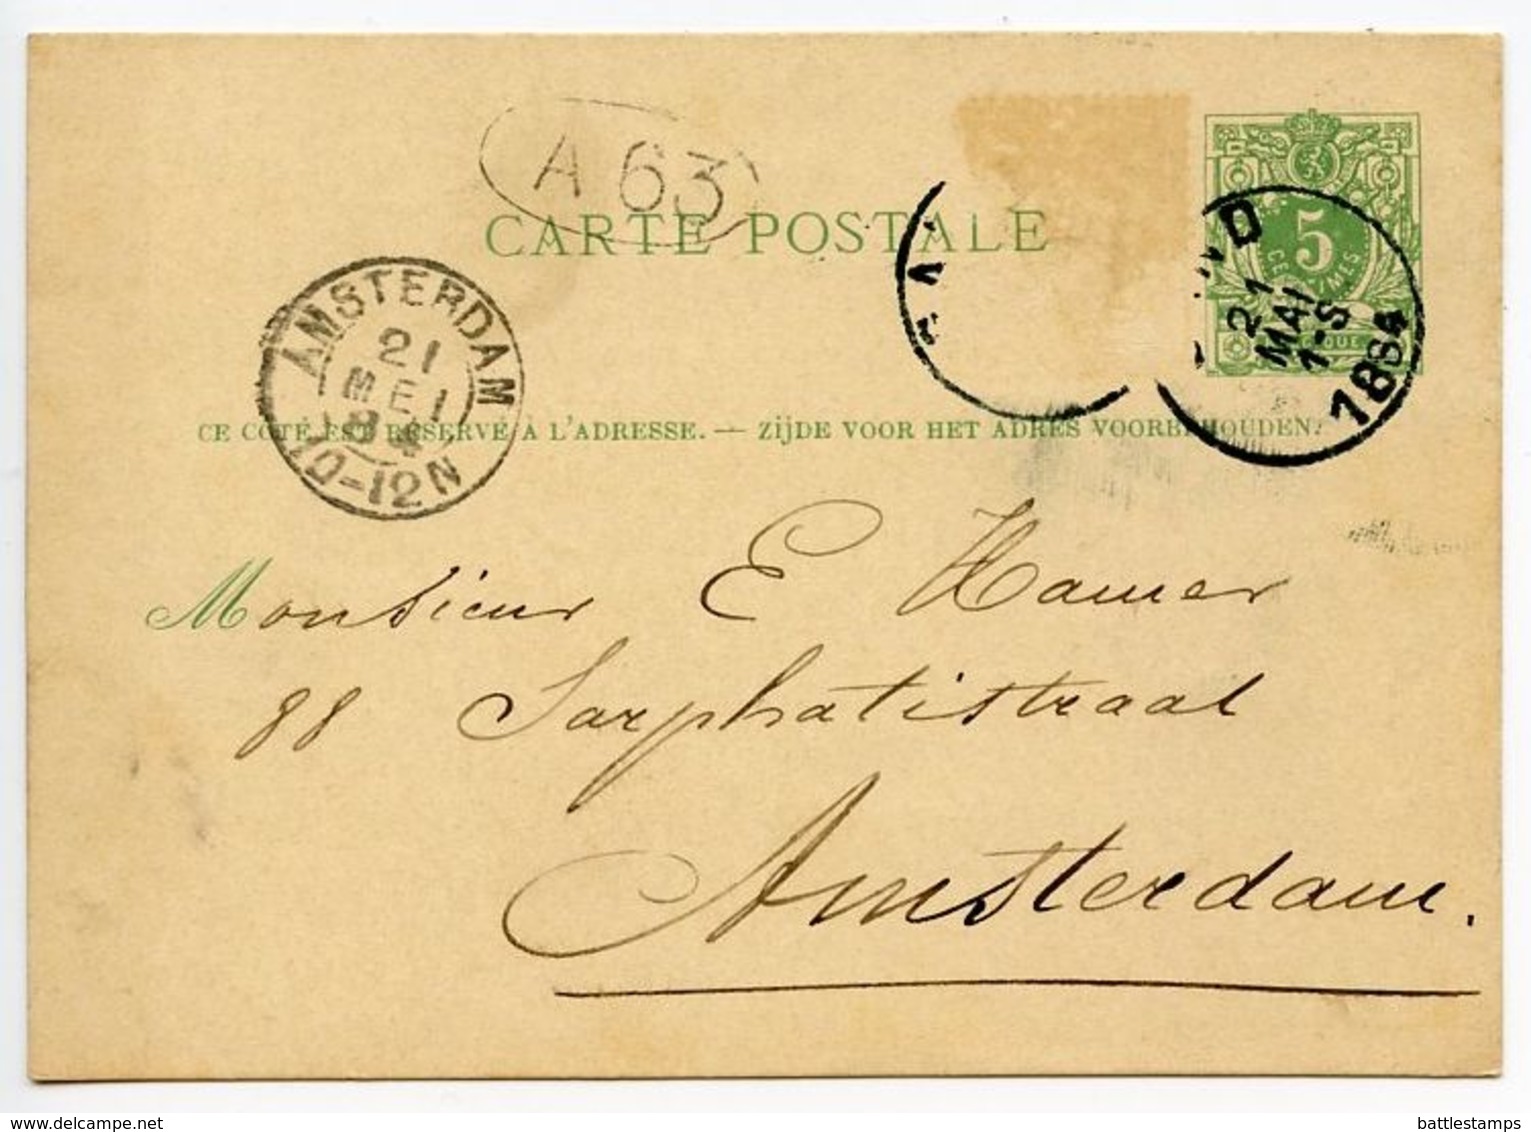 A 63
CARTE POSTALE
5
CENTIMES
21
MAI
1-S
1884
AMSTERDAM
21
MEI
84
10-12N
CE CÔTÉ EST RÉSERVÉ À L'ADRESSE. — ZIJDE VOOR HET ADRES VOORBEHOUDEN.
Monsieur E Hamer
88 Sarphatistraat
Amsterdam.
delcampe.net
battlestamps